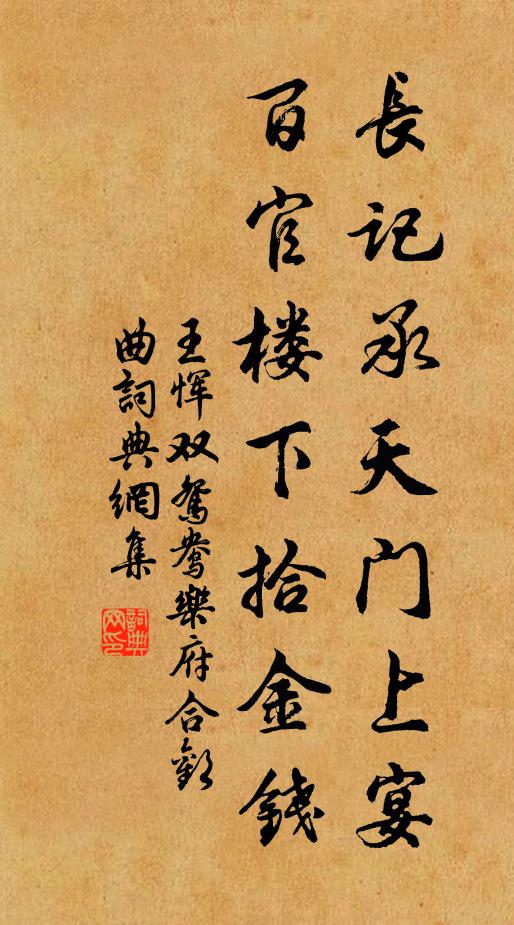 長记承天门上宴
百官楼下拾金錢
王恽双鸳鸯樂府合歡
曲詞典網集
詞典
网印